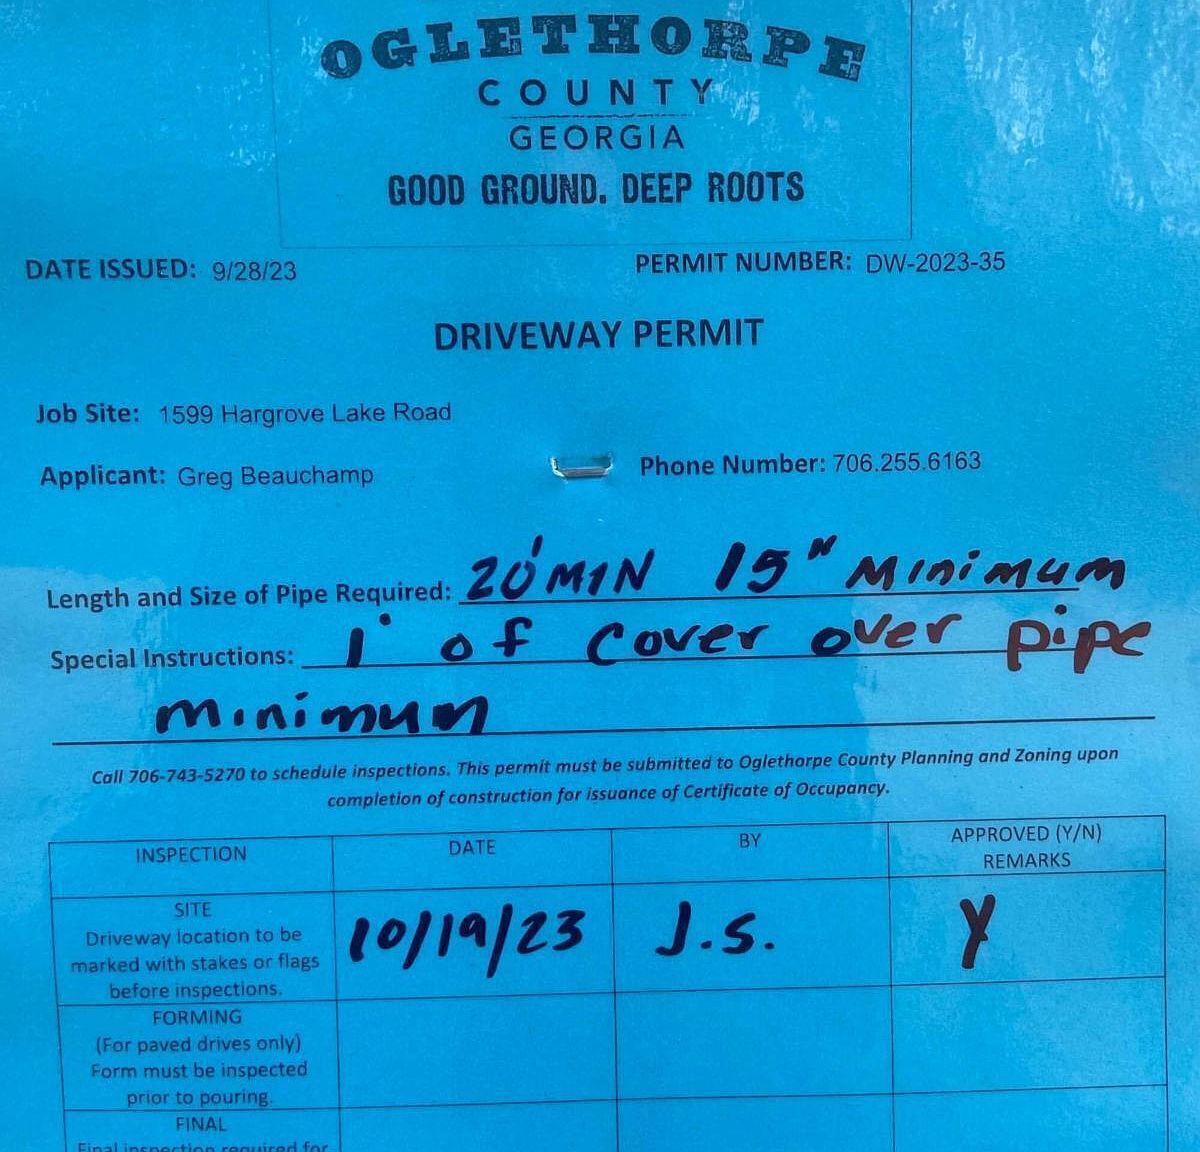 OGLETHORPE
COUNTY
GEORGIA
GOOD GROUND. DEEP ROOTS
DATE ISSUED: 9/28/23 PERMIT NUMBER: DW-2023-35
DRIVEWAY PERMIT
Job Site: 1599 Hargrove Lake Road
Applicant: Greg Beauchamp Phone Number: 706.255.6163
Length and Size of Pipe Required: 20' MIN 15" Minimum
Special Instructions: 1' of cover over pipe
minimum
Call 706-743-5270 to schedule inspections. This permit must be submitted to Oglethorpe County Planning and Zoning upon
completion of construction for issuance of Certificate of Occupancy.
INSPECTION DATE BY APPROVED (Y/N)
REMARKS
SITE
Driveway location to be
marked with stakes or flags
before inspections.
10/19/23 J.S. Y
FORMING
(For paved drives only)
Form must be inspected
prior to pouring.
FINAL
Final inspection required for